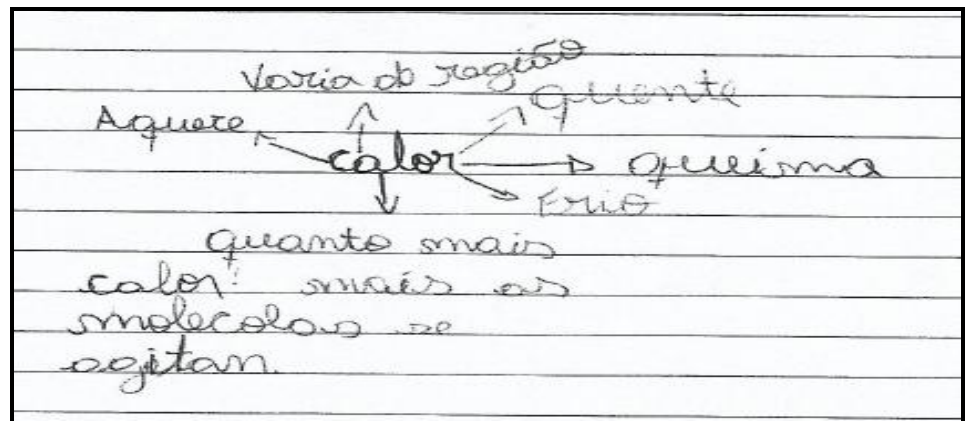 Varia do região
quente
Aquere
calor
queima
Frio
quanto mais
calor: mais as
molecolas se
agitan.